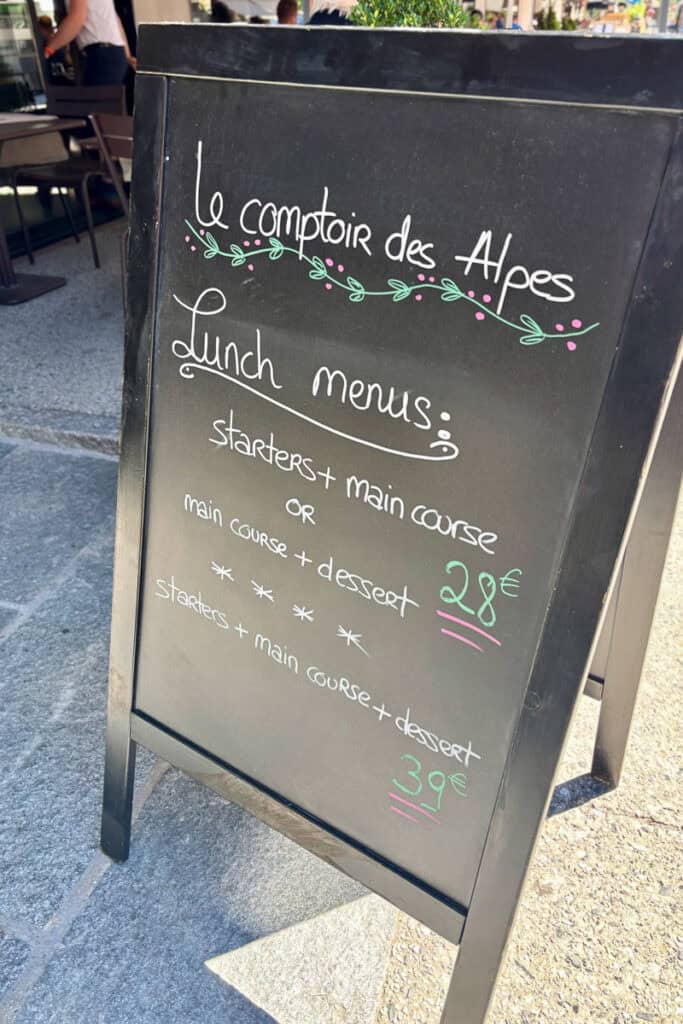 Le comptoir des Alpes
Lunch menus:
starters + main course
OR
main course + dessert 28€
* * * *
starters + main course + dessert
39€